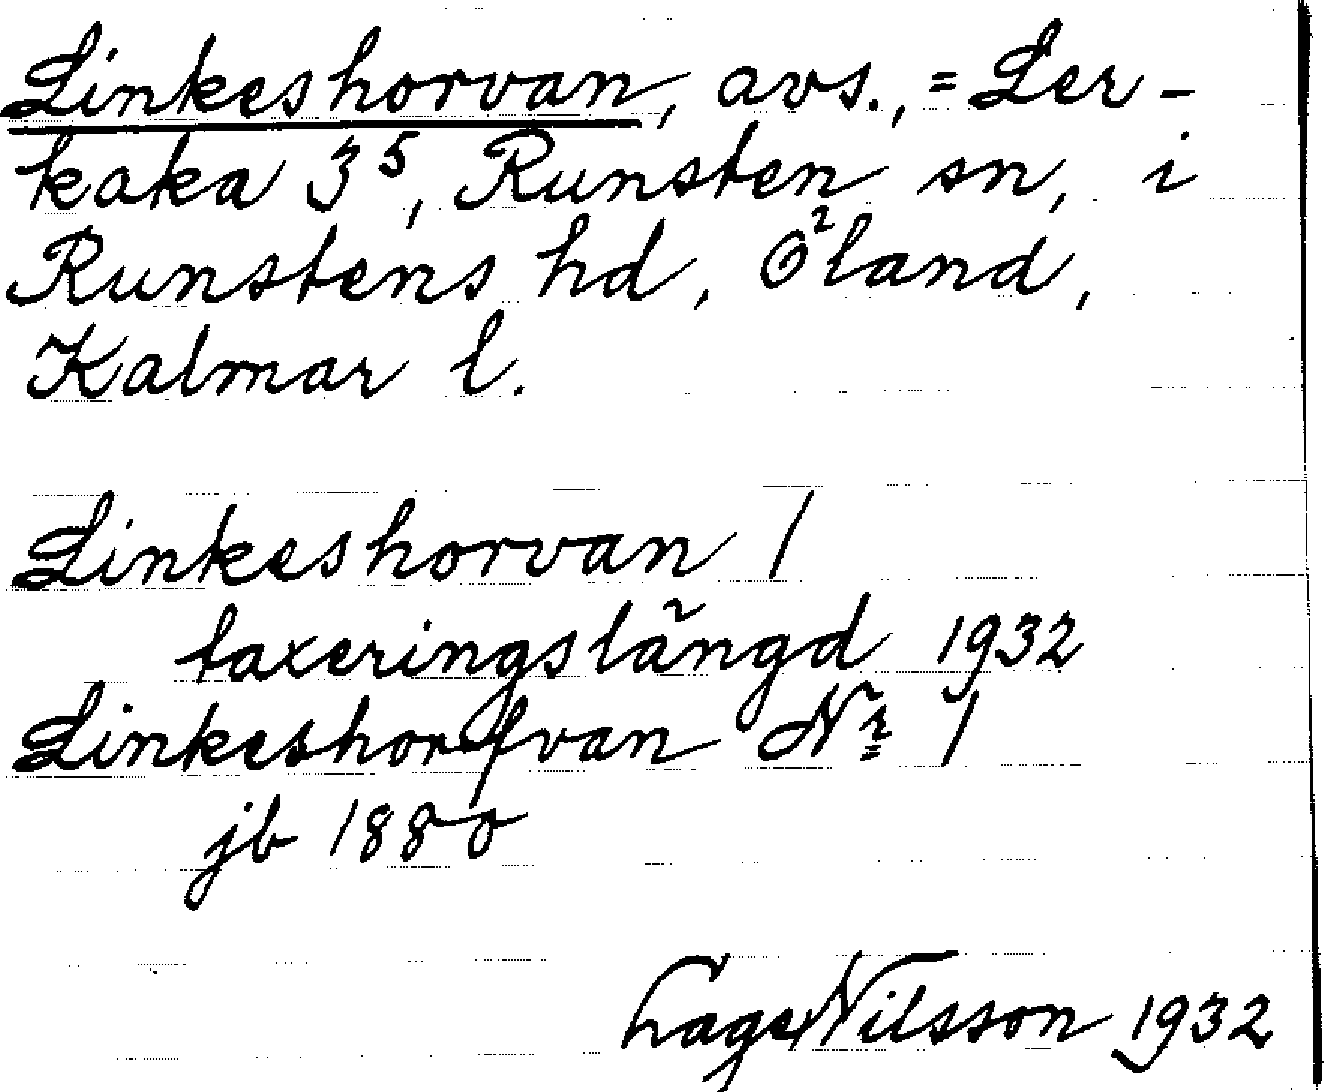 Linkeshorvan, avs., = Ler-
kaka 3⁵, Runsten sn, i
Runstens hd, Öland,
Kalmar l.
Linkeshorvan 1
taxeringslängd 1932
Linkeshorfvan Nr 1
jb 1880
Lage Nilsson 1932